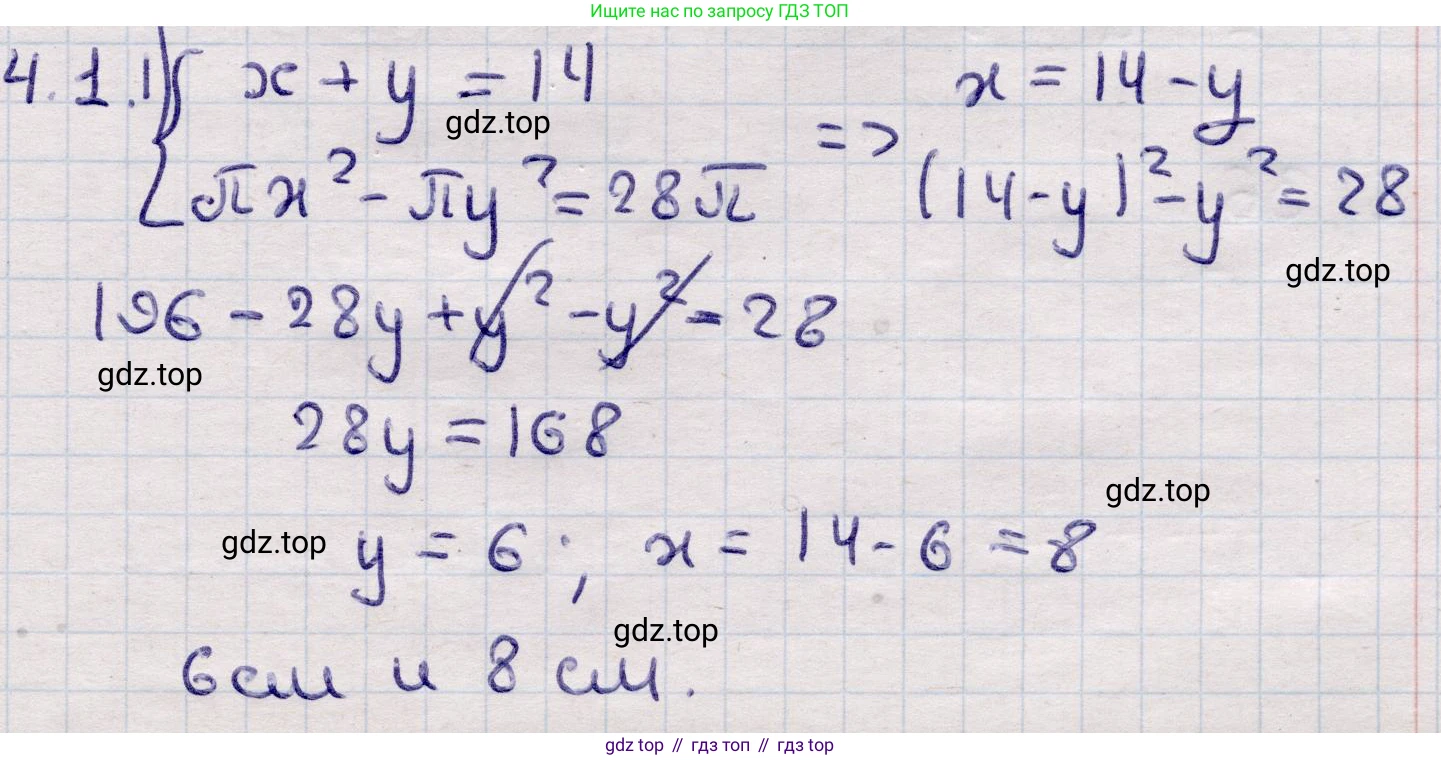 Ищите нас по запросу ГДЗ ТОП
4.1.1) { x + y = 14
πx² - πy² = 28π
=>
x = 14 - y
(14 - y)² - y² = 28
gdz.top
gdz.top
196 - 28y + y² - y² = 28
gdz.top
28y = 168
gdz.top
gdz.top y = 6 ; x = 14 - 6 = 8
gdz.top
6 см и 8 см.
gdz top // гдз топ // гдз top